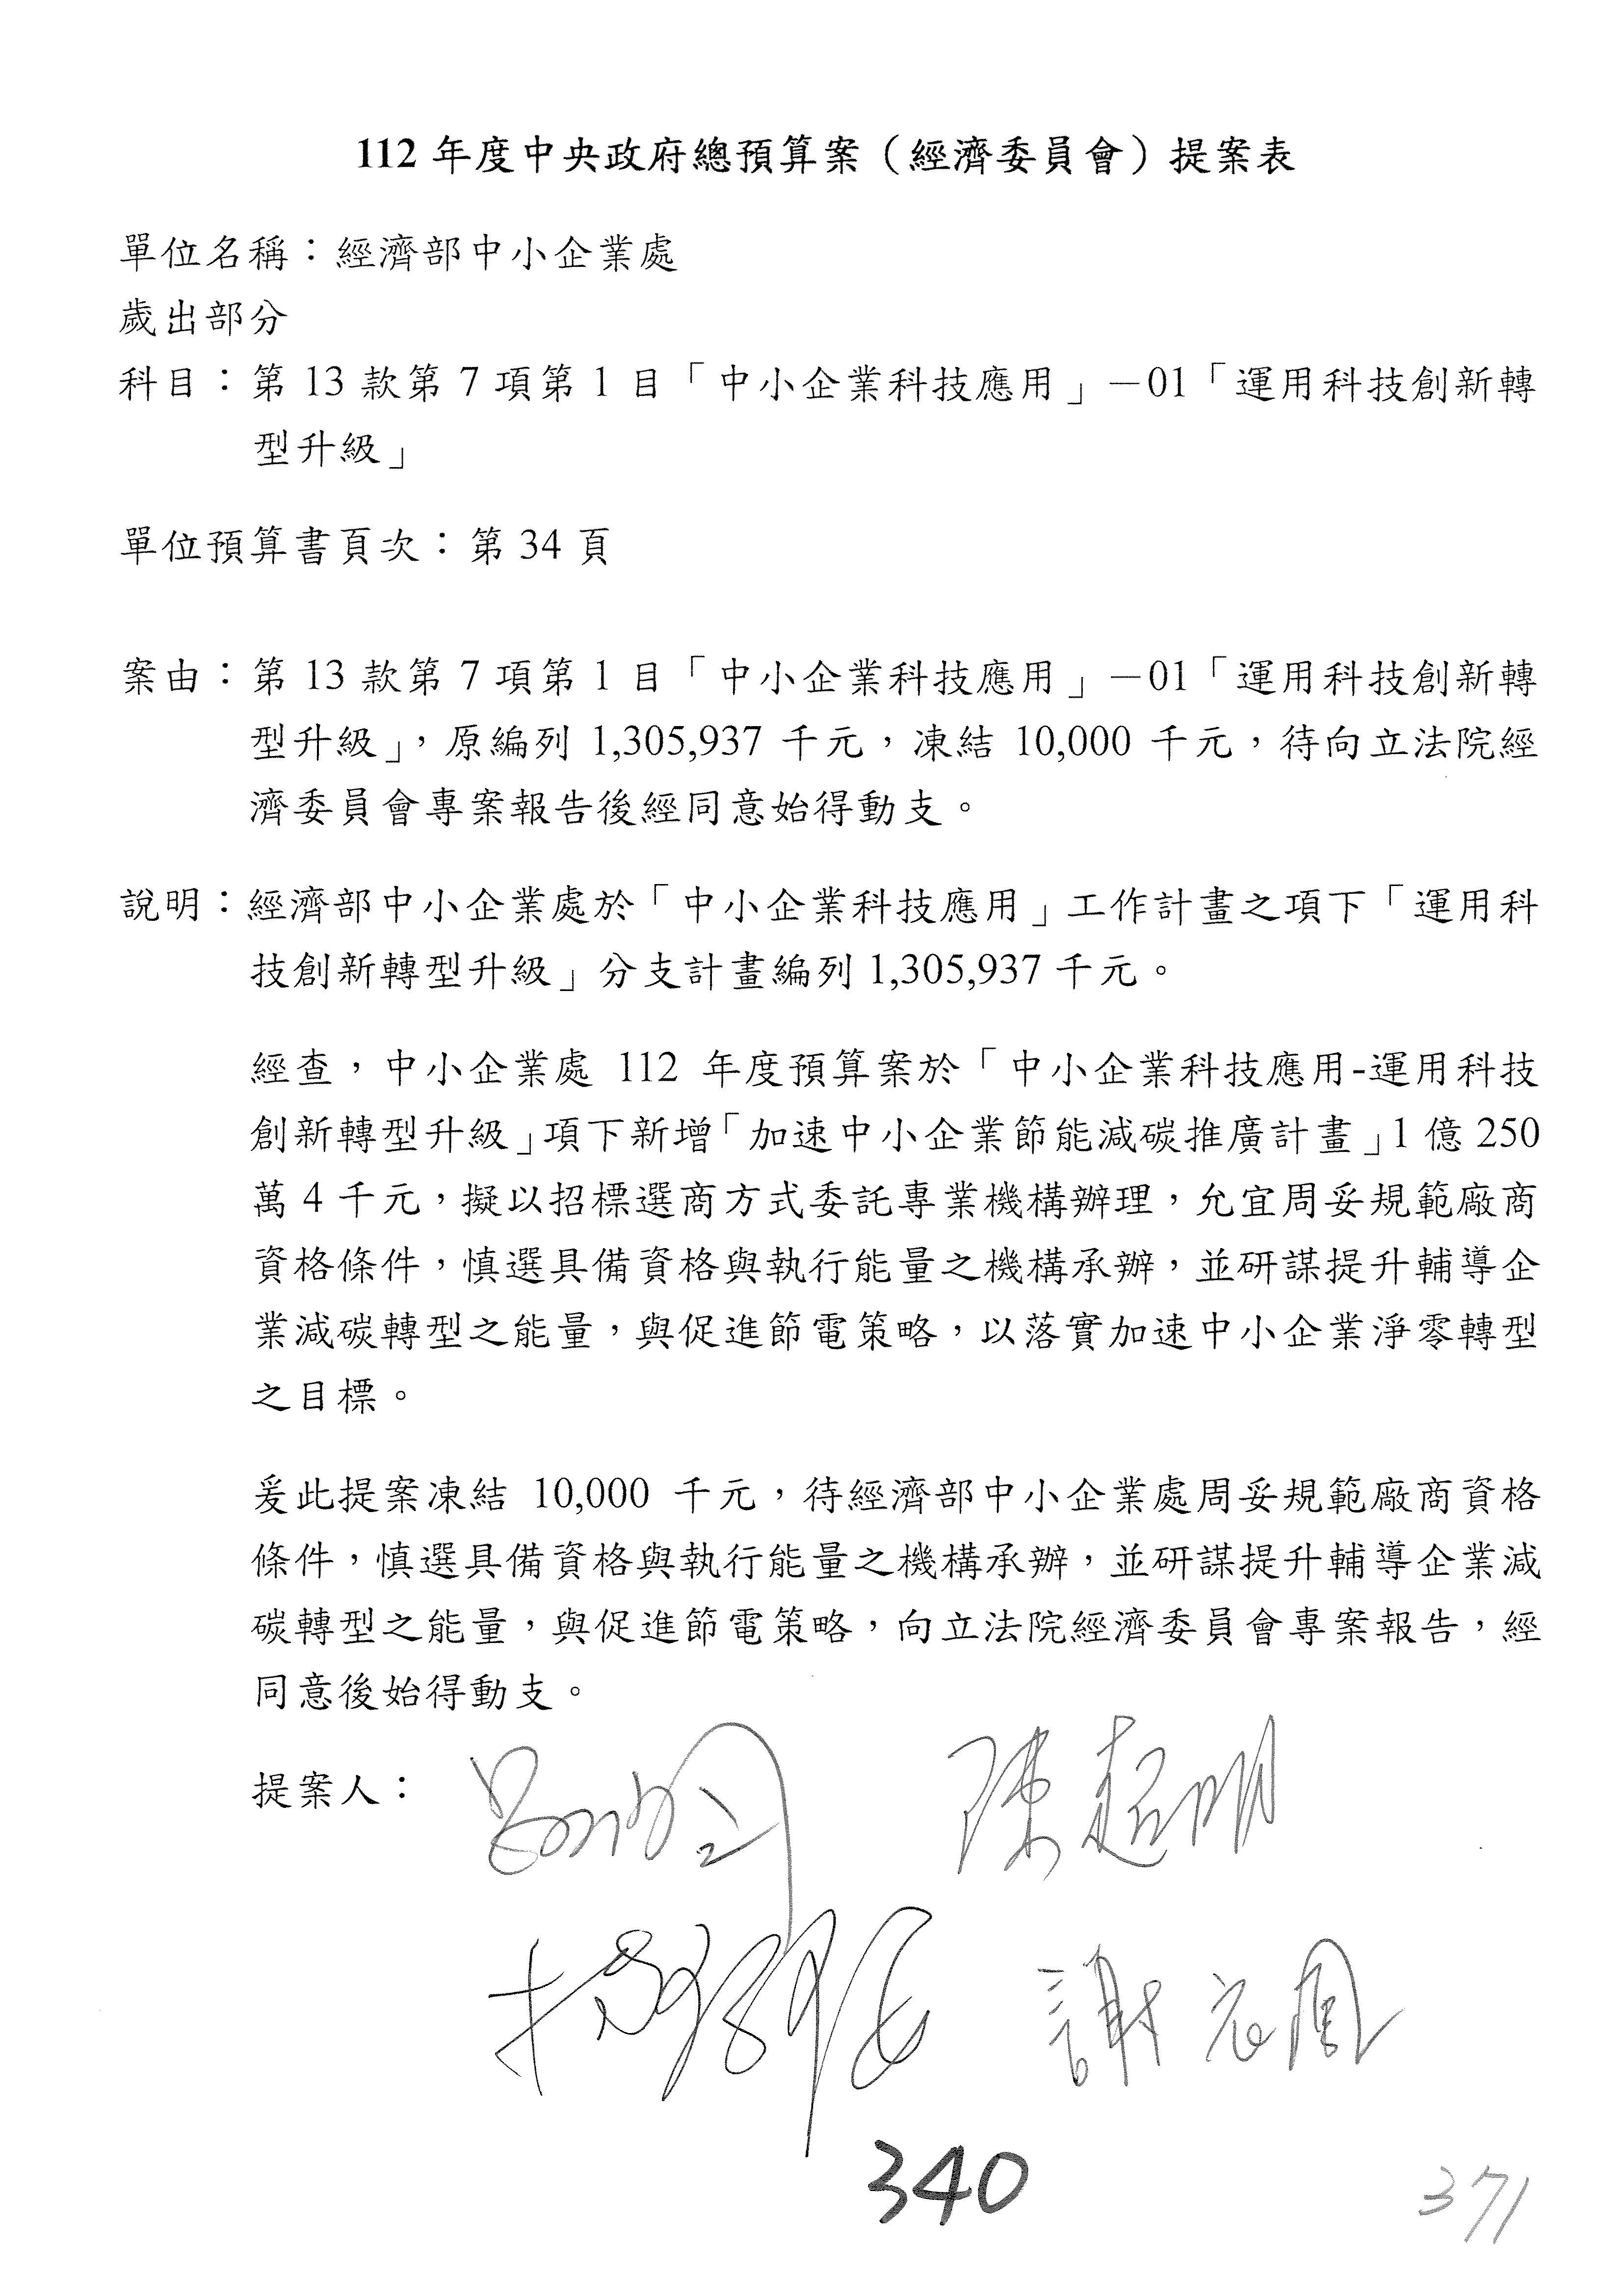 112 年度中央政府總預算案（經濟委員會）提案表
單位名稱：經濟部中小企業處
歲出部分
科目：第 13 款第 7 項第 1 目「中小企業科技應用」－01「運用科技創新轉
型升級」
單位預算書頁次：第 34 頁
案由：第 13 款第 7 項第 1 目「中小企業科技應用」－01「運用科技創新轉
型升級」，原編列 1,305,937 千元，凍結 10,000 千元，待向立法院經
濟委員會專案報告後經同意始得動支。
說明：經濟部中小企業處於「中小企業科技應用」工作計畫之項下「運用科
技創新轉型升級」分支計畫編列 1,305,937 千元。
經查，中小企業處 112 年度預算案於「中小企業科技應用-運用科技
創新轉型升級」項下新增「加速中小企業節能減碳推廣計畫」1 億 250
萬 4 千元，擬以招標選商方式委託專業機構辦理，允宜周妥規範廠商
資格條件，慎選具備資格與執行能量之機構承辦，並研謀提升輔導企
業減碳轉型之能量，與促進節電策略，以落實加速中小企業淨零轉型
之目標。
爰此提案凍結 10,000 千元，待經濟部中小企業處周妥規範廠商資格
條件，慎選具備資格與執行能量之機構承辦，並研謀提升輔導企業減
碳轉型之能量，與促進節電策略，向立法院經濟委員會專案報告，經
同意後始得動支。
提案人：
陳超明
謝衣鳳
340
371